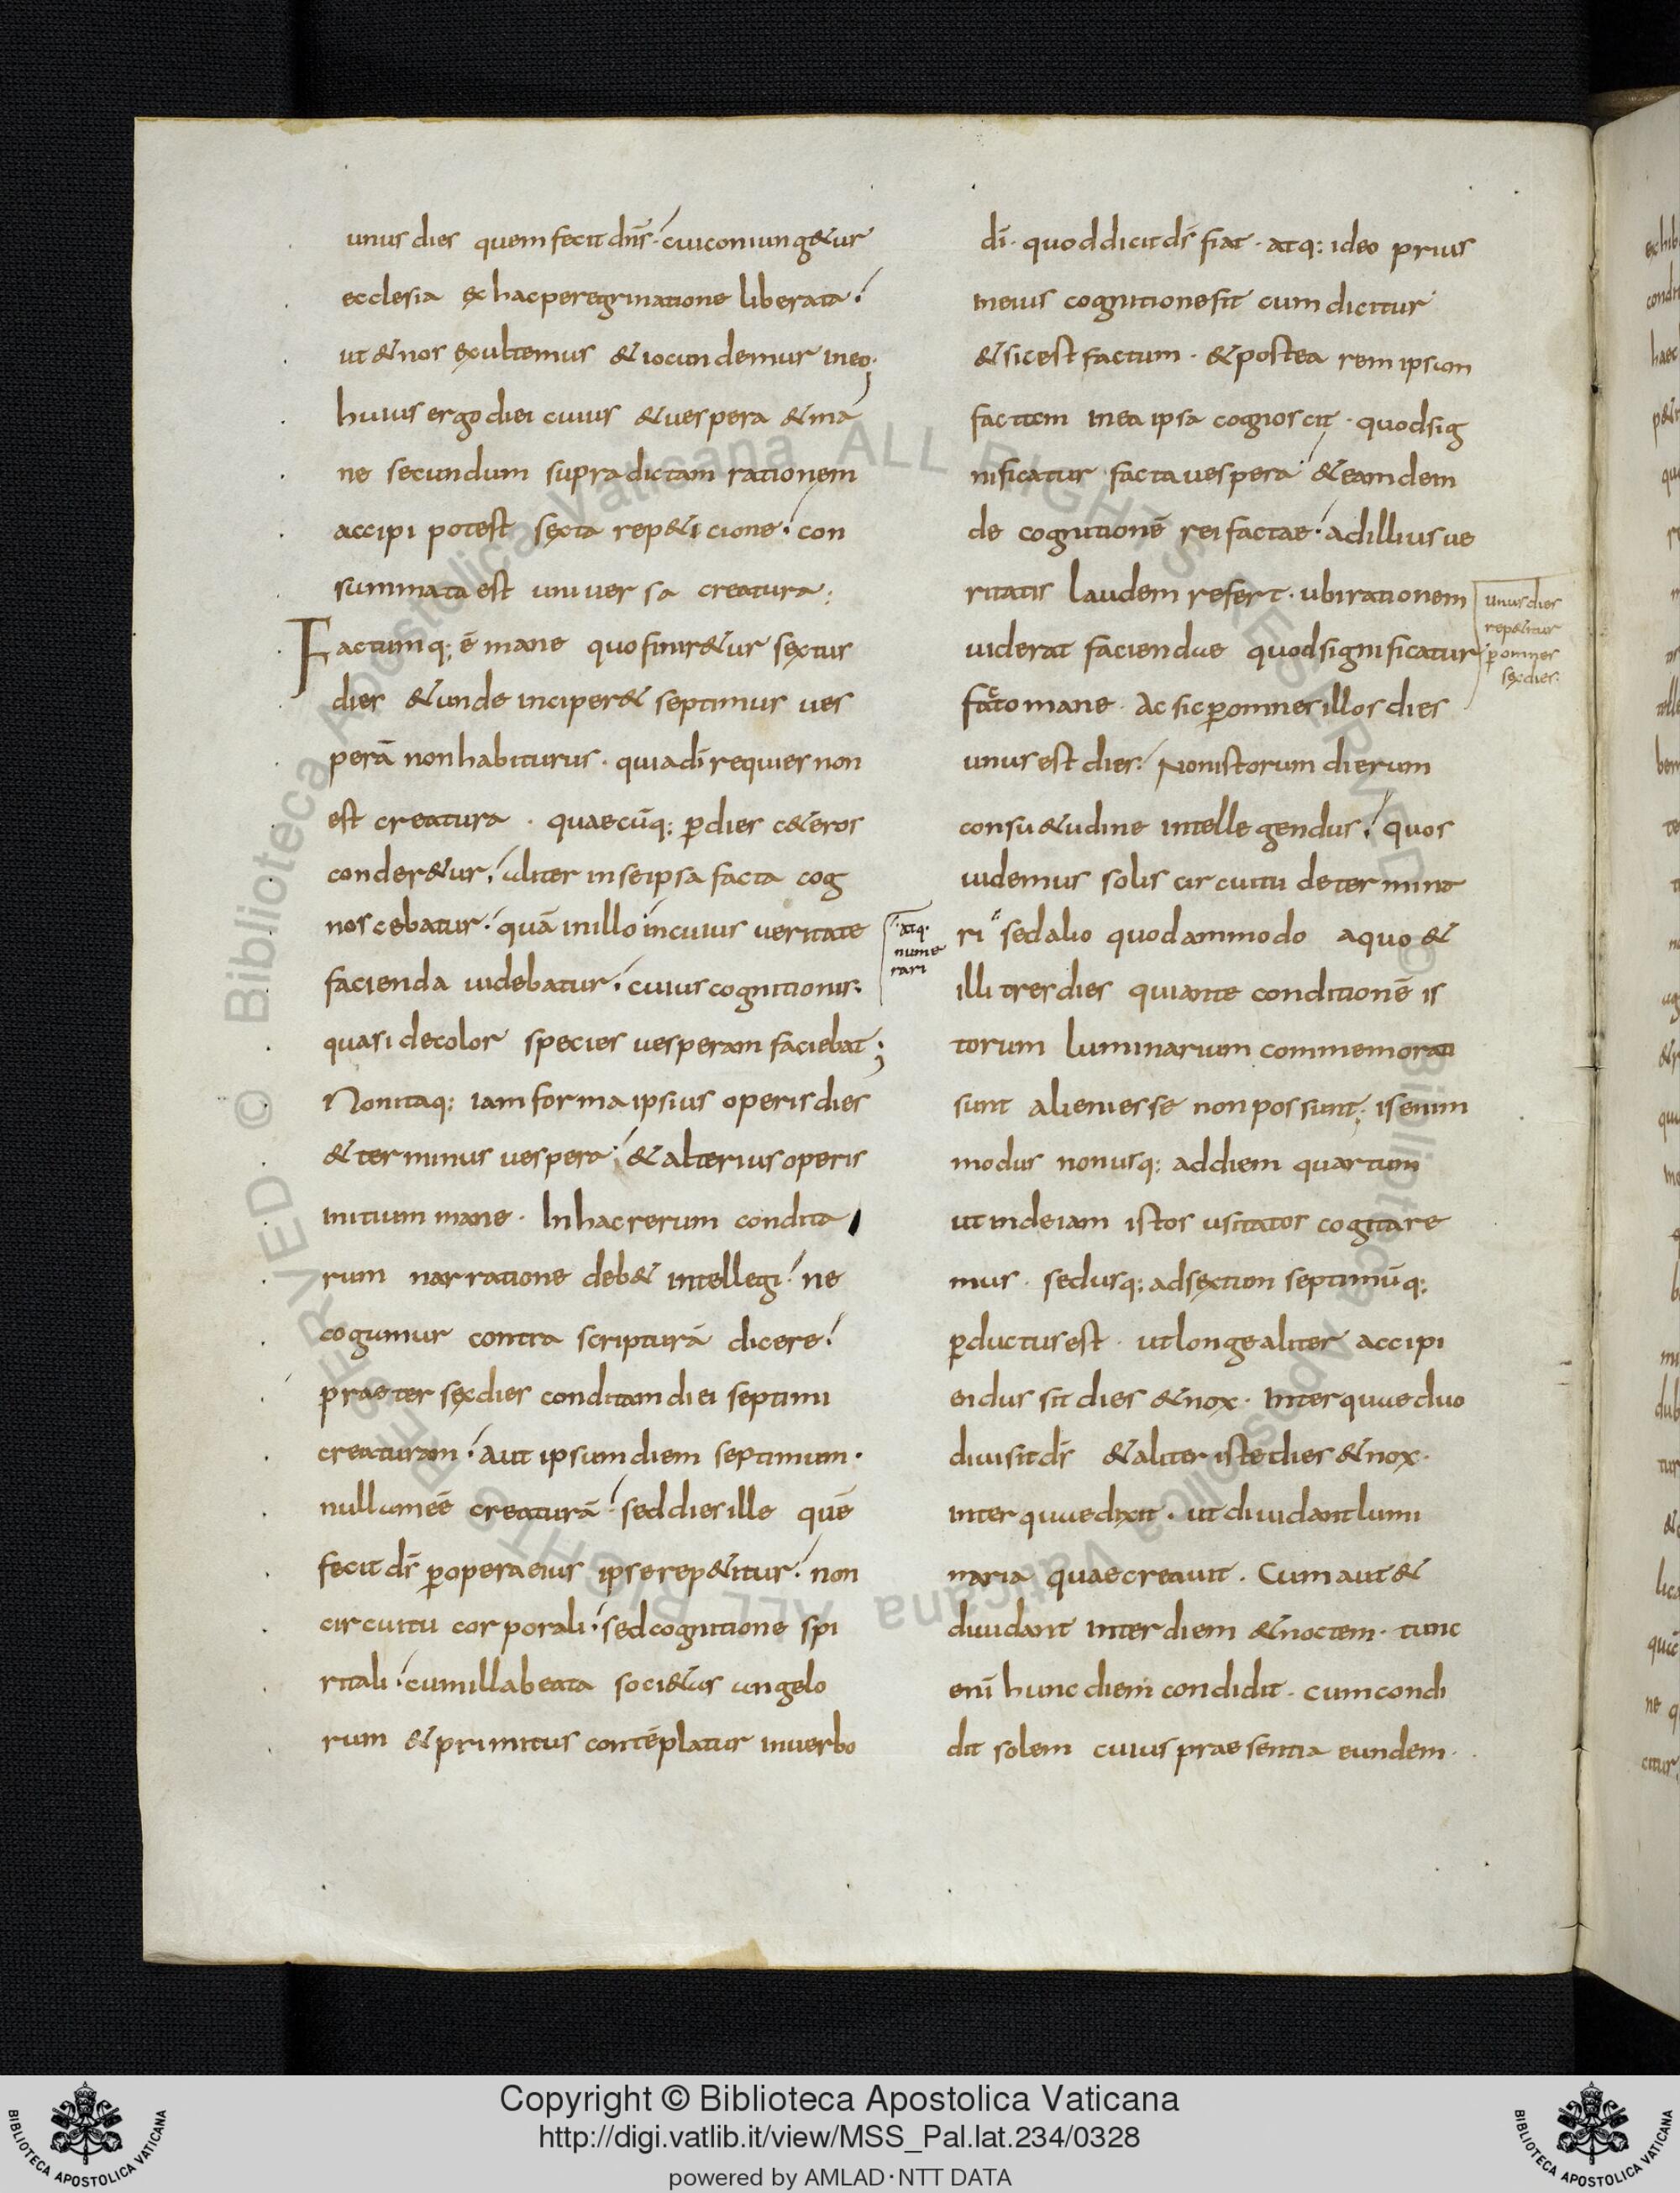 unus dies quem fecit dn̄s· cui coniung&ur
ecclesia ex hac peregrinatione liberata·
ut & nos exultemus & iocundemur in eo;
huius ergo diei cuius & uespera & ma
ne secundum supra dictam rationem
accipi potest sexta rep&icione· con
summata est uniuersa creatura:
Factumq; ē mane quo finir&ur sextus
dies & unde inciper& septimus ues
perā non habiturus· quia dī requies non
est creatura · quaecūq; ꝑ dies c&eros
conder&ur· aliter in se ipsa facta cog
noscebatur· quā in illo in cuius ueritate
facienda uidebatur· cuius cognitionis·
quasi decolor species uesperam faciebat;
Non itaq; iam forma ipsius operis dies
& terminus uespera· & alterius operis
initium mane· In hac rerum condita
rum narratione deb& intellegi· ne
cogamur contra scripturā dicere·
praeter sex dies conditam diei septimi
creaturam· aut ipsum diem septimum·
nullam eē creaturā· sed dies ille quē
fecit ds̄ ꝑ opera eius ipse rep&itur· non
circuitu corporali· sed cognitione spi
ritali· cum illa beata soci&as angelo
rum & primitus contēplatur in uerbo
dī· quod dicit ds̄ fiat· atq; ideo prius
in eius cognitione fit cum dicitur
& sic est factum· & postea rem ipsam
factam in ea ipsa cognoscit· quod sig
nificatur facta uespera· & eamdem
de cognitionē rei factae· ad illius ue
ritatis laudem refert· ubi rationem
uiderat faciendae quod significatur
facto mane· Ac sic ꝑ omnes illos dies
unus est dies· Non istorum dierum
consu&udine intellegendus· quos
uidemus solis circuitu determina
ri sed alio quodammodo a quo &
illi tres dies qui ante conditionē is
torum luminarium commemorati
sunt alieni esse non possunt; is enim
modus non usq; ad diem quartum
ut inde iam istos usitatos cogitare
mus· sed usq; ad sextum septimūq;
ꝑductus est· ut longe aliter accipi
endus sit dies & nox· Inter quae duo
diuisit ds̄ & aliter iste dies & nox·
inter quae dixit· ut diuidant lumi
naria quae creauit· Cum aut &
diuidant inter diem & noctem· tunc
eni hunc diem condidit· cum condi
dit solem cuius praesentia eundem·
unus dies
rep&itur
ꝑ omnes
sex dies:
atq·
nume
rari
Copyright © Biblioteca Apostolica Vaticana
http://digi.vatlib.it/view/MSS_Pal.lat.234/0328
powered by AMLAD·NTT DATA
BIBLIOTECA APOSTOLICA VATICANA
BIBLIOTECA APOSTOLICA VATICANA